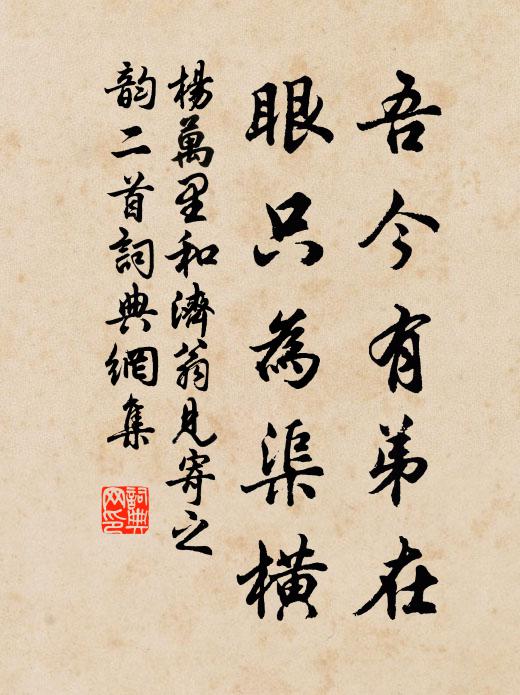 吾今有弟在
眼只為渠橫
楊萬里和濟翁見寄之
韵二首詞典網集
詞典
网印